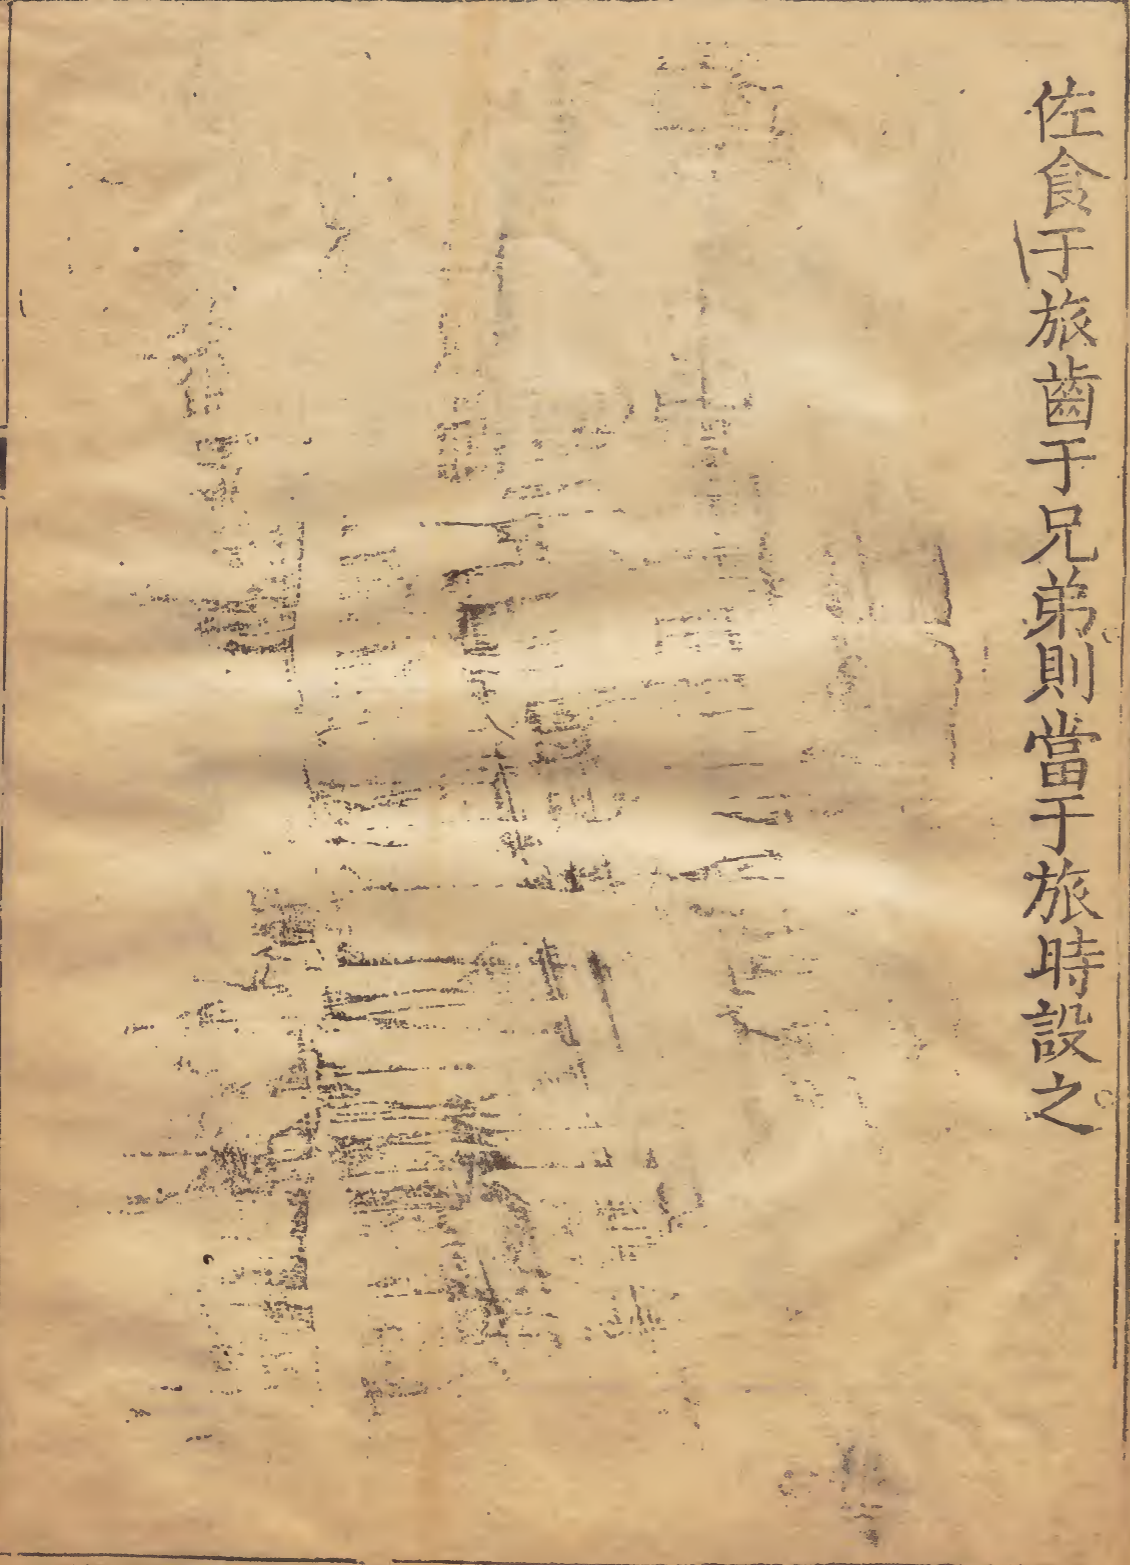 佐食于旅齒于兄弟則當于旅時設之